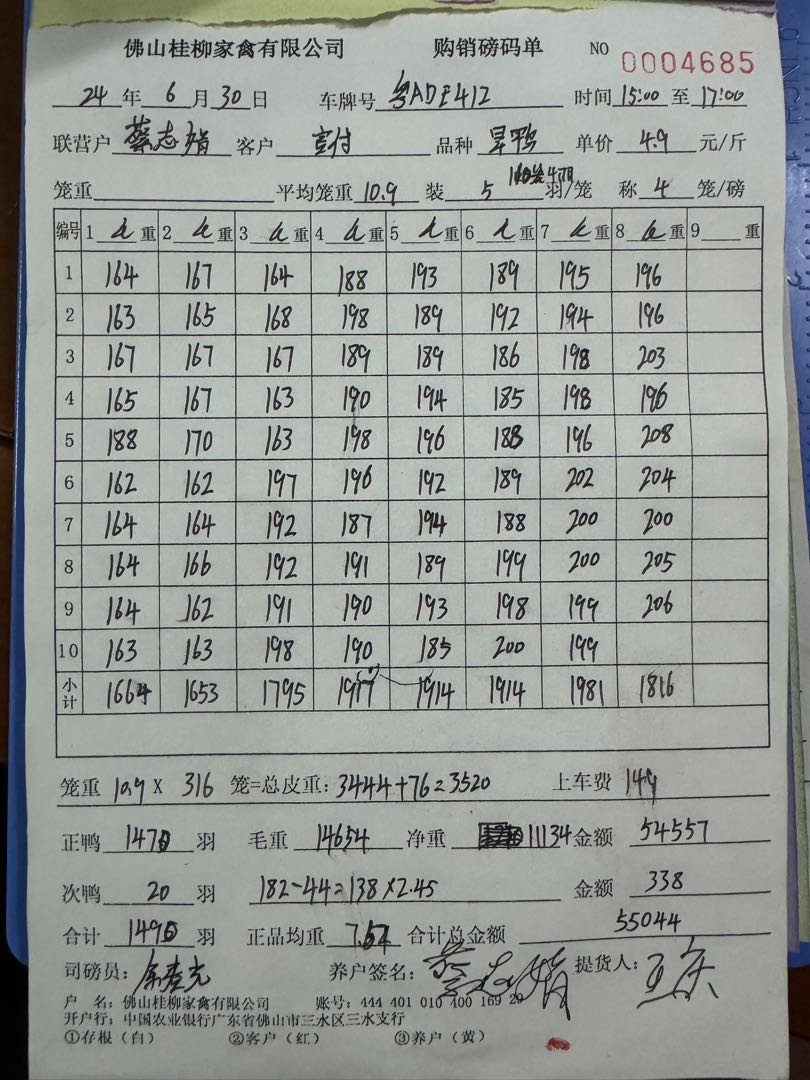 佛山桂柳家禽有限公司 购销磅码单 NO 0004685
24 年 6 月 30 日 车牌号 粤ADE412 时间 15:00 至 17:00
联营户 蔡志娟 客户 客户 品种 旱鸭 单价 4.9 元/斤
笼重 平均笼重 10.9 装 5 羽/笼 称 4 笼/磅
编号 1 重 2 重 3 重 4 重 5 重 6 重 7 重 8 重 9 重
1 164 167 164 188 193 189 195 196
2 163 165 168 198 189 192 194 196
3 167 167 167 189 189 186 198 203
4 165 167 163 190 194 185 198 196
5 188 170 163 198 196 188 196 208
6 162 162 197 196 192 189 202 204
7 164 164 192 187 194 188 200 200
8 164 166 192 191 189 199 200 205
9 164 162 191 190 193 198 199 206
10 163 163 198 190 185 200 199
小计 1664 1653 1795 1917 1914 1914 1981 1816
笼重 10.9 X 316 笼=总皮重: 3444+76=3520 上车费 149
正鸭 1470 羽 毛重 14654 净重 11134 金额 54557
次鸭 20 羽 182-44=138×2.45 金额 338
合计 1490 羽 正品均重 7.57 合计总金额 55044
司磅员: 养户签名: 蔡志娟 提货人:
户 名: 佛山桂柳家禽有限公司 账号: 444 401 010 400 169 29
开户行: 中国农业银行广东省佛山市三水区三水支行
①存根(白) ②客户(红) ③养户(黄)